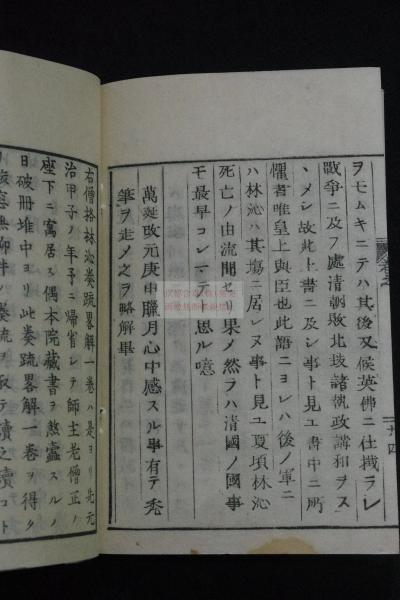 ヲモムキニテハ其後又候英佛ニ仕掛ラレ
戰爭ニ及フ處清朝敗北故諸執政講和ヲス
ヽメシ故此上書ニ及シ事ト見ユ書中ニ所
懼者唯皇上與臣也此語ニヨレハ後ノ軍ニ
ハ林沁ハ其塲ニ居レヌ事ト見ユ夏頃林沁
死亡ノ由流聞セリ果ノ然ラハ清國ノ國事
モ最早コレマテト思ル噫
萬延改元庚申臘月心中感スル事有テ禿
筆ヲ走メ之ヲ略解畢
右僧格林沁奏疏畧解一卷ハ是ヨリ先元
治甲子ノ年予ニ帰省レテ師主老僧正ノ
座下ニ寓居ス偶本院藏書ヲ熬盧スルノ
日破冊堆中ヨリ此奏疏畧解一卷ヲ得タ